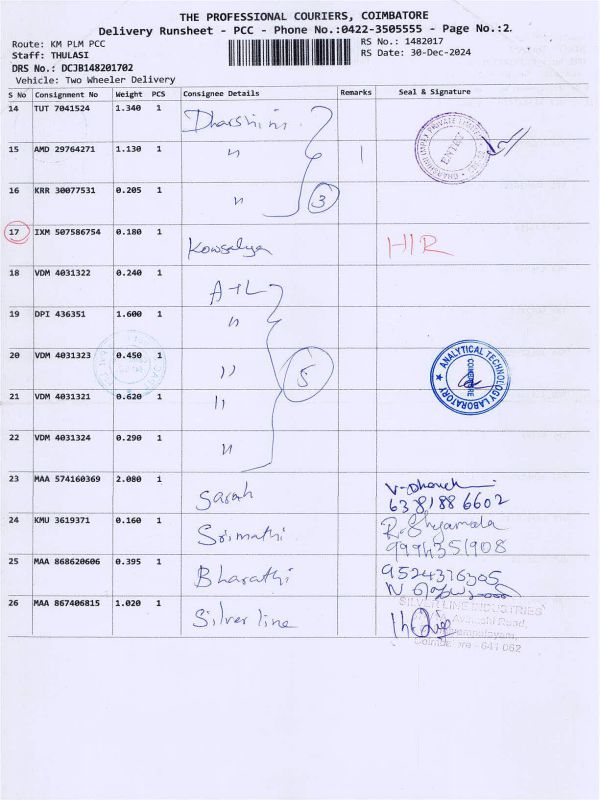 THE PROFESSIONAL COURIERS, COIMBATORE
Delivery Runsheet - PCC - Phone No.:0422-3505555 - Page No.:2
Route: KM PLM PCC
RS No.: 1482017
Staff: THULASI
RS Date: 30-Dec-2024
DRS No.: DCJB148201702
Vehicle: Two Wheeler Delivery
S No Consignment No Weight PCS Consignee Details Remarks Seal & Signature
14 TUT 7041524 1.340 1 Dharshini
15 AMD 29764271 1.130 1 〃 |
16 KRR 30077531 0.205 1 〃 3
DHARSHINI IMPEX PRIVATE LIMITED
17 IXM 507586754 0.180 1 Kowsalya HIR
18 VDM 4031322 0.240 1 ATL
19 DPI 436351 1.600 1 〃
20 VDM 4031323 0.450 1 〃 5
ANALYTICAL TECHNOLOGY LABORATORY
COIMBATORE
21 VDM 4031321 0.620 1 〃
22 VDM 4031324 0.290 1 〃
23 MAA 574160369 2.080 1 Sarah
6381886602
24 KMU 3619371 0.160 1 Srimathi R. Shyamala
9994351908
25 MAA 868620606 0.395 1 Bharathi 9524376305
26 MAA 867406815 1.020 1 Silver line
SILVER LINE INDUSTRIES
Road,
Coimbatore - 641 062